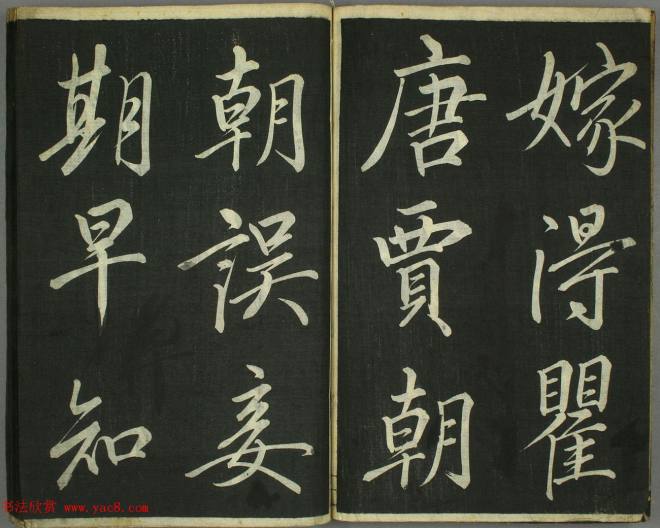 嫁得瞿
唐賈朝
朝誤妾
期早知
书法欣赏 www.yac8.com